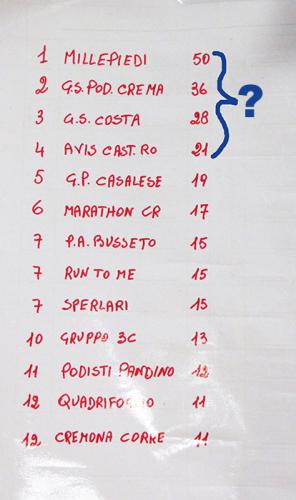 1 MILLEPIEDI 50
2 G.S. POD. CREMA 36
3 G.S. COSTA 28
4 AVIS CAST. RO 21
?
5 G.P. CASALESE 19
6 MARATHON CR 17
7 P.A. BUSSETO 15
7 RUN TO ME 15
7 SPERLARI 15
10 GRUPPO 3C 13
11 PODISTI PANDINO 12
12 QUADRIFOGLIO 11
12 CREMONA CORRE 11